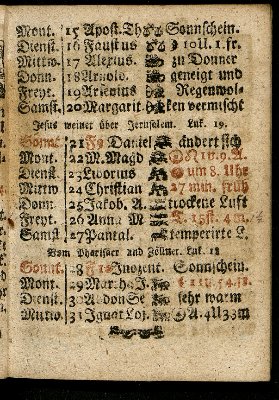 Mont. 15 Apost. Th Sonnschein.
Dienst. 16 Faustus 10 U. 1. fr.
Mittw. 17 Alexius. zu Donner
Donn. 18 Arnold. geneigt und
Freyt. 19 Arsenius Regenwol-
Samst. 20 Margarit. ken vermischt
Jesus weinet über Jerusalem. Luk. 19.
Sonnt. 21 F9 Daniel ändert sich
Mont. 22 M. Magd U. 9. A.
Dienst. 23 Liborius um 8. Uhr
Mittw. 24 Christian 27 min. früh
Donn. 25 Jakob. A. trockene Luft
Freyt. 26 Anna M
Samst. 27 Pantal. temperirte L.
Vom Pharisäer und Zöllner. Luk. 18
Sonnt. 28 F10 Inozent. Sonnschein.
Mont. 29 Martha J.
Dienst. 30 Abdon Se sehr warm
Mittw. 31 Ignat Loj. A. 4 U 33 m